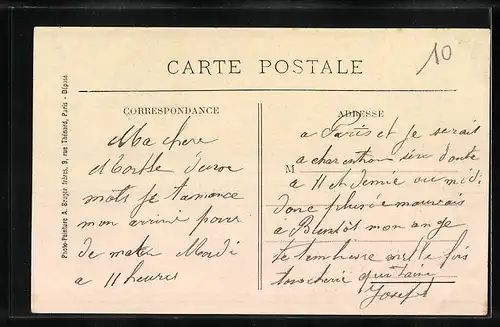 10
CARTE POSTALE
CORRESPONDANCE
Ma chere
Marthe deux
mots je t'anance
mon arrivé pour
de mat Mardi
a 11 heures
ADRESSE
a Paris et je serais
M a charenton sere doute
a 11 et demie ou midi
donc plus de mauvais
à Bientot mon ange
mille fois
ton cheri qui t'aime
Joseph
Photo-Peinture A. Breger frères, 9, rue Thénard, Paris - Déposé